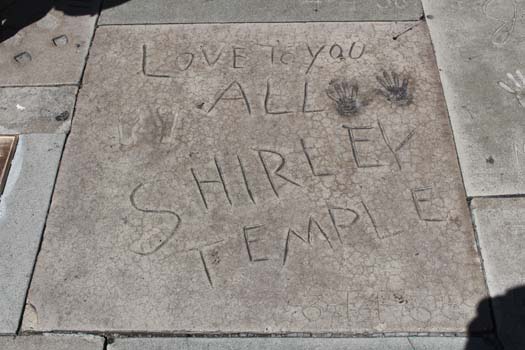 LOVE TO YOU
ALL
SHIRLEY
TEMPLE